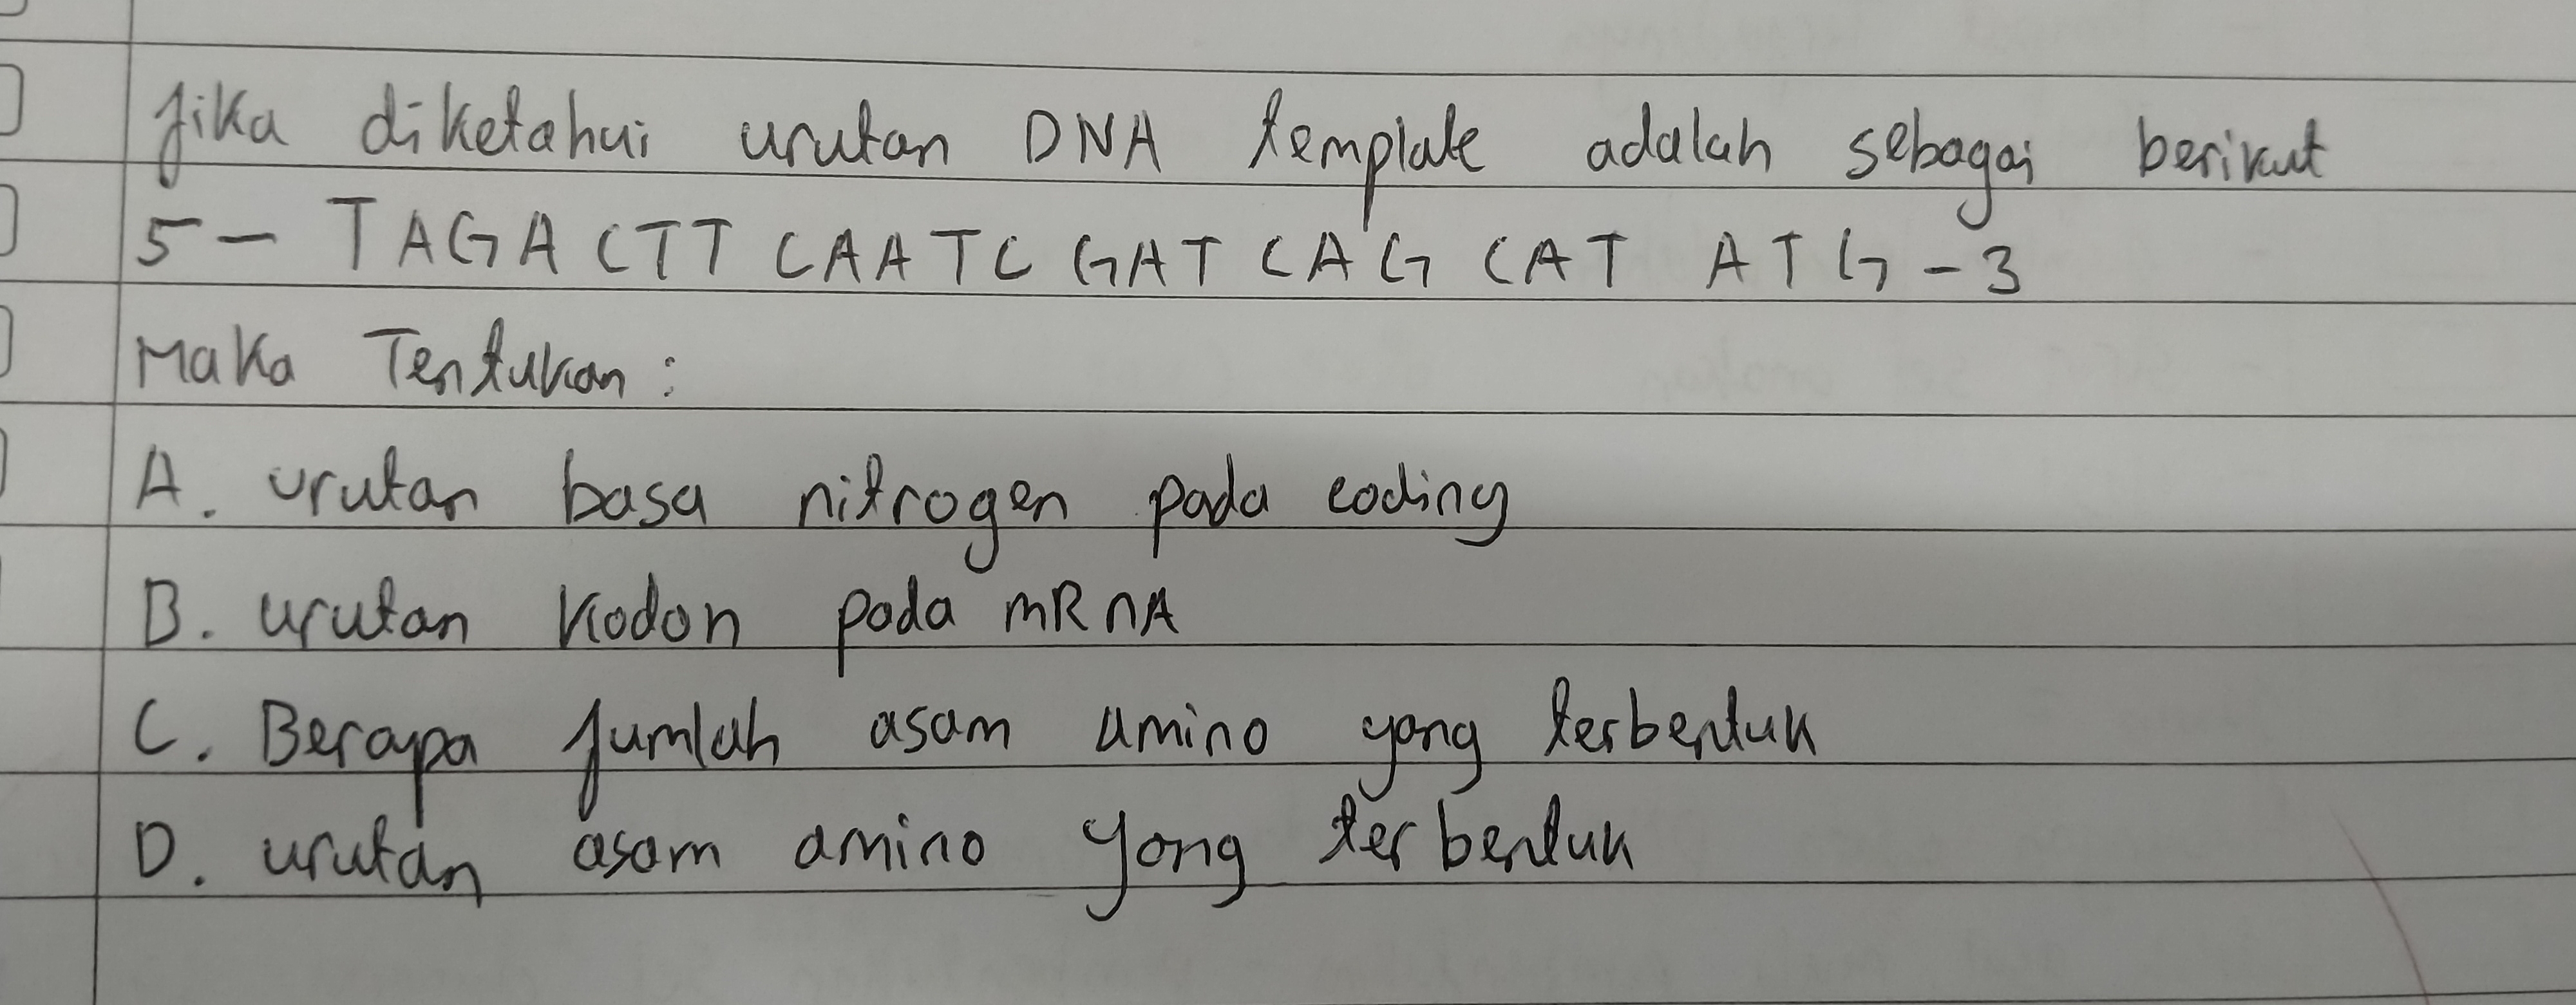 Jika diketahui urutan DNA template adalah sebagai berikut
5 - TAGA CTT CAATC GAT CAG CAT ATG - 3
Maka Tentukan :
A. urutan basa nitrogen pada coding
B. urutan Kodon pada mRNA
C. Berapa Jumlah asam amino yang terbentuk
D. urutan asam amino yang terbentuk